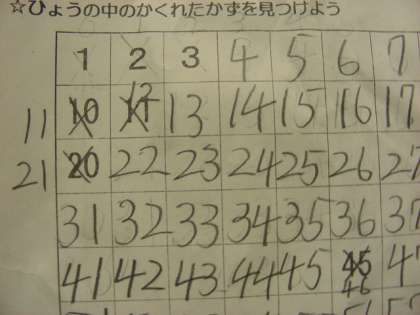 ☆ひょうの中のかくれたかずを見つけよう
1 2 3 4 5 6 7
12
11 10 11 13 14 15 16 17
21 20 22 23 24 25 26 27
31 32 33 34 35 36 37
41 42 43 44 45 45
46